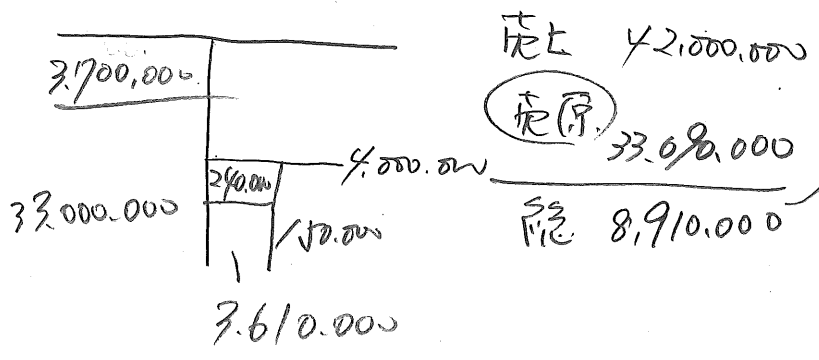 3.700,000
240.000
4.000.000
33.000.000
150.000
3.610.000
売上 42.000.000
売原 33.090.000
総 8,910.000